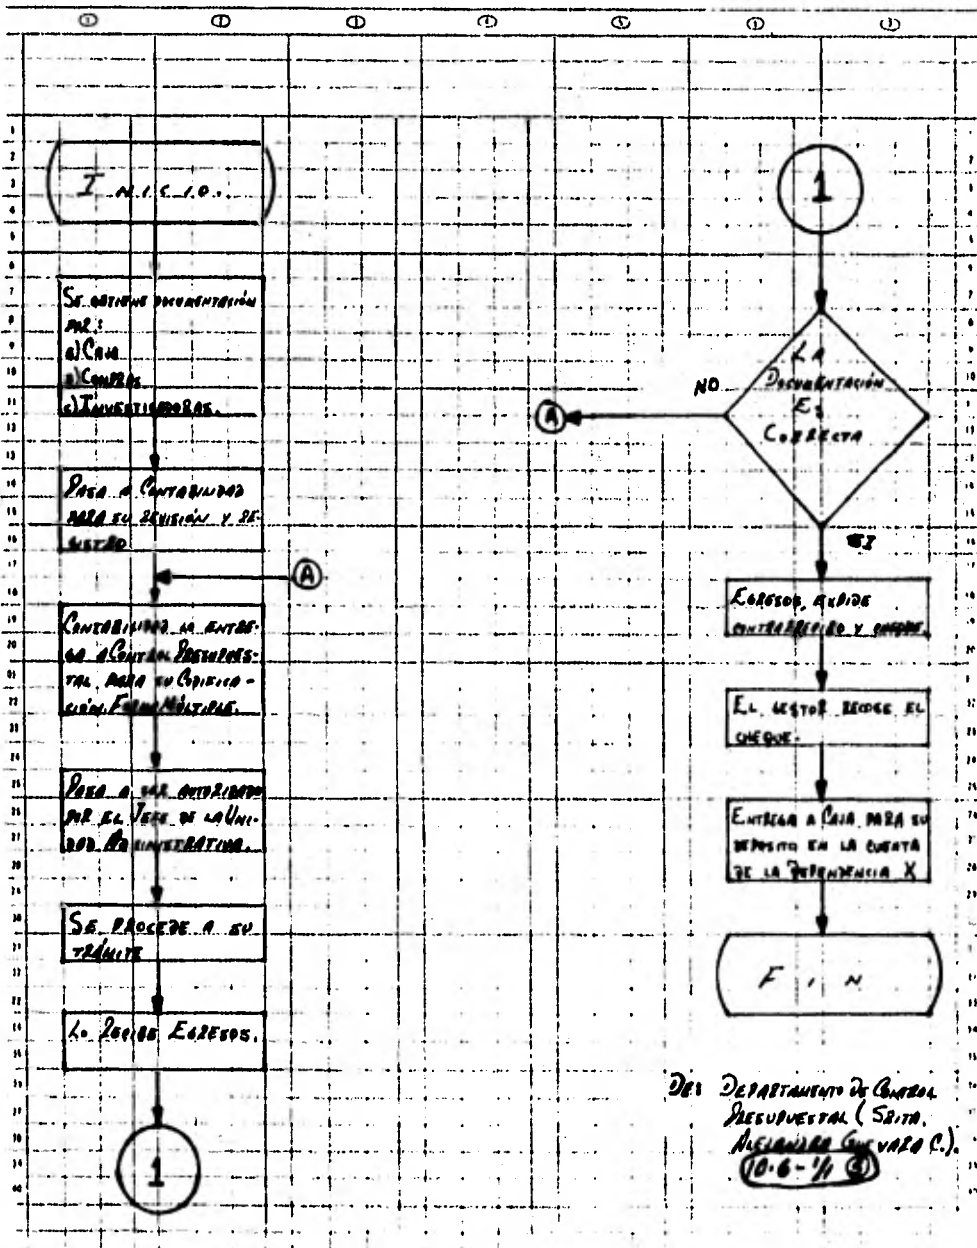 I N.I.C.I.O.
SE OBTIENE DOCUMENTACIÓN
POR:
a) CAJA
B) COMPRAS
c) INVESTIGADORAS.
PASA A CONTABILIDAD
PARA SU REVISIÓN Y RE-
GISTRO
A
CONTABILIDAD LA ENTRE-
GA A CONTROL PRESUPUES-
TAL PARA SU CODIFICA-
CIÓN. FORMA MÚLTIPLE.
PASA A SER AUTORIZADO
POR EL JEFE DE LA UNI-
DAD ADMINISTRATIVA.
SE PROCEDE A SU
TRÁMITE
LO RECIBE EGRESOS.
1
1
LA
DOCUMENTACIÓN
ES
CORRECTA
NO
A
SI
EGRESOS, EXPIDE
CONTRARRECIBO Y CHEQUE.
EL GESTOR RECOGE EL
CHEQUE.
ENTREGA A CAJA PARA SU
DEPOSITO EN LA CUENTA
DE LA DEPENDENCIA X
F I N
DEPARTAMENTO DE CONTROL
PRESUPUESTAL (SRITA.
ALEJANDRA GUEVARA C.).
10.6-1/1